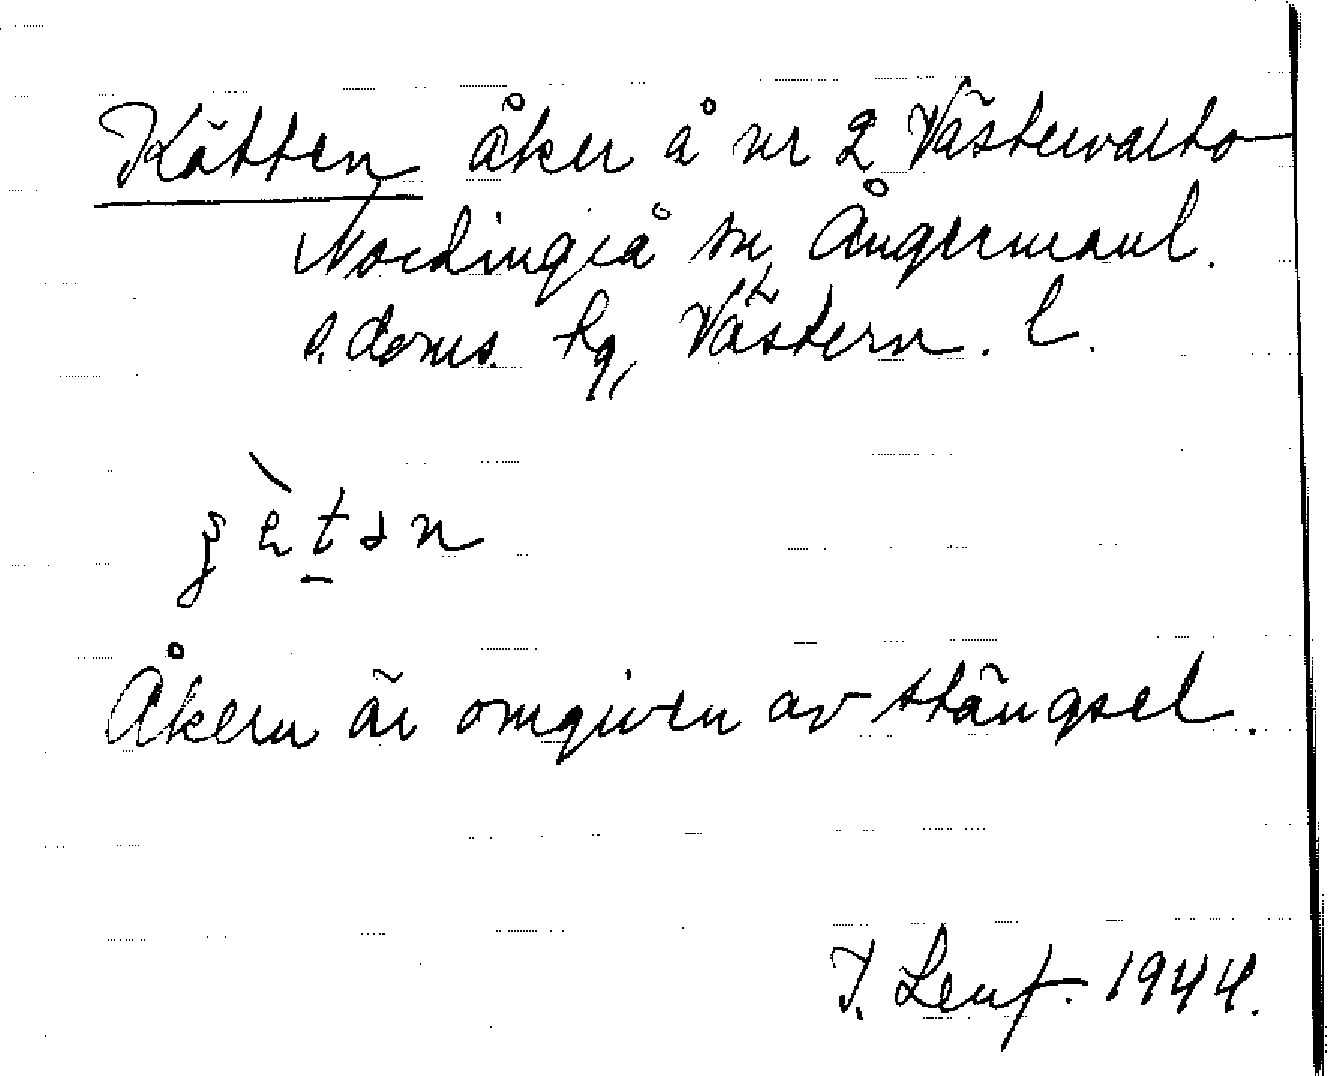 Kätten åker å nr 2 Västervårto
Nordingrå sn, Ångermanl.
s. doms. hg, Västern. l.
ʂètən
Åkern är omgiven av stängsel.
I. Lenf. 1944.